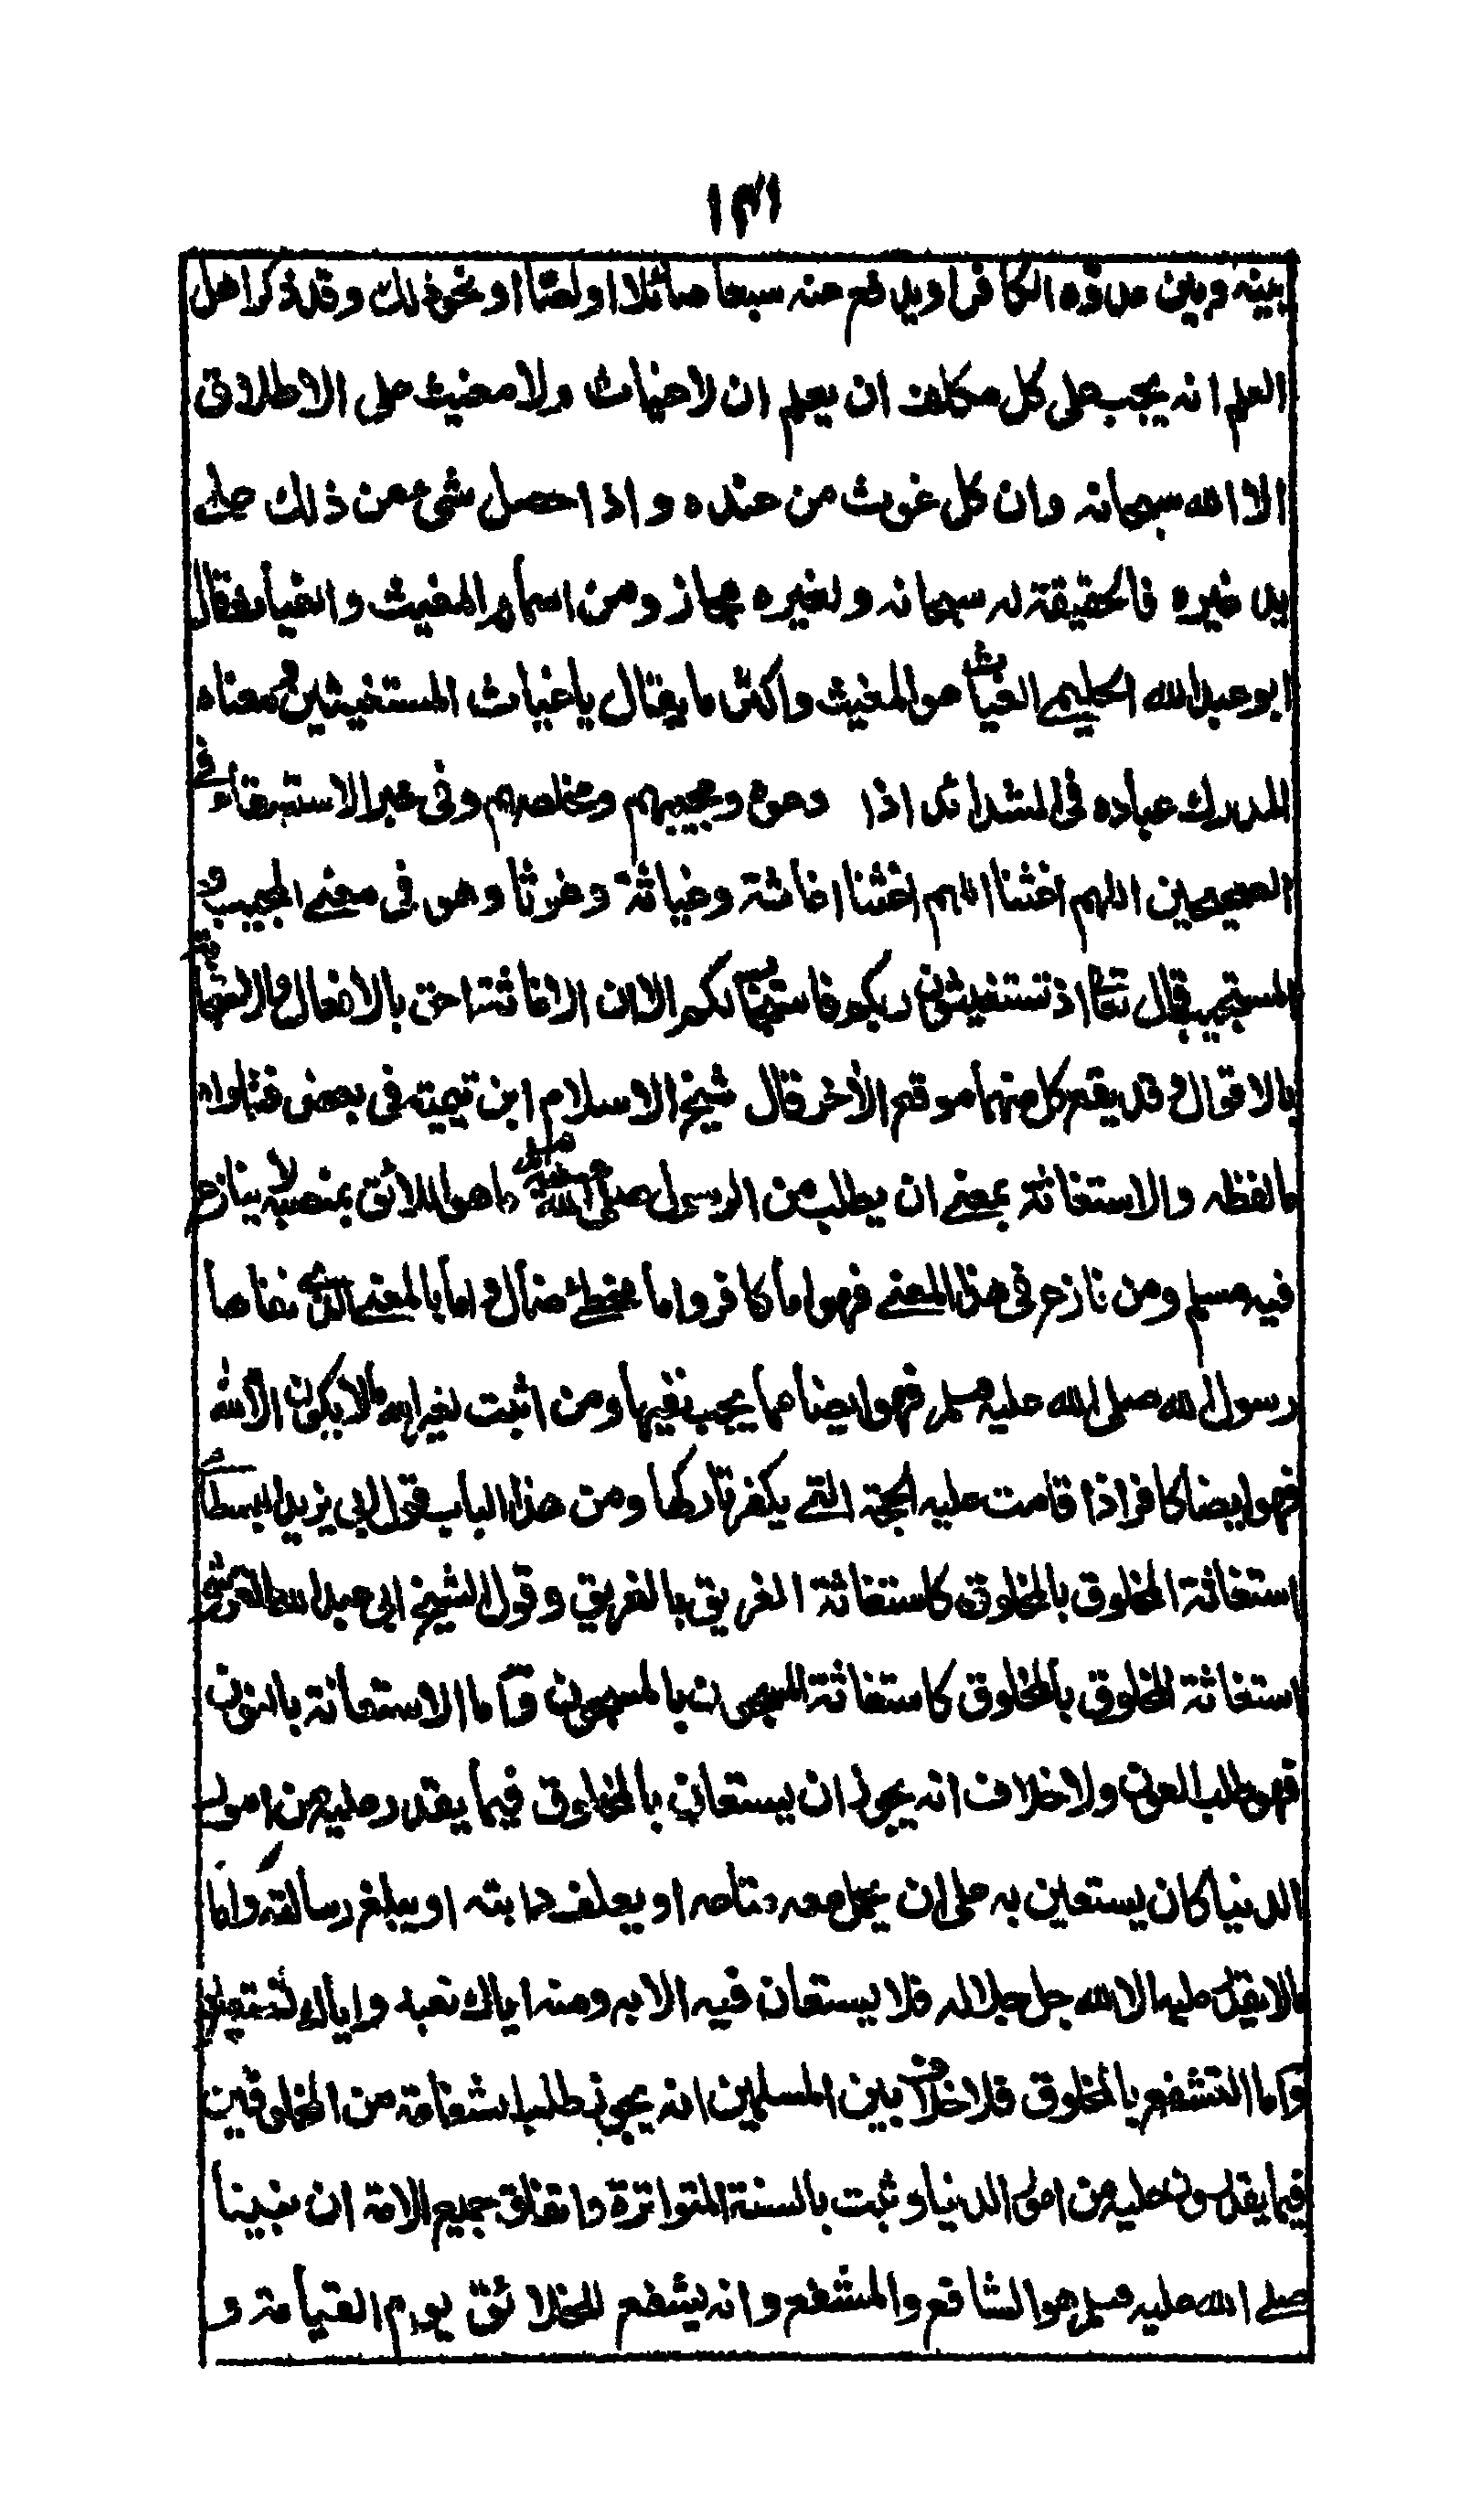 ١٣١
بينه وبين عدوه الكافر او يدفع عنه سبعا صائلا او لصا او نحو ذلك وقد ذكر اهل
العلم انه يجب على كل مكلف ان يعلم ان لا غياث ولا مغيث على الاطلاق
الا الله سبحانه وان كل غوث من عنده واذا حصل شيء من ذلك على
يد غيره فالحقيقة له سبحانه ولغيره مجاز ومن اسمائه المغيث والغياث قال
ابو عبد الله الحليمي الغياث هو المغيث واكثر ما يقال يا غياث المستغيثين ومعناه
المدرك عباده في الشدائد اذا دعوه ويجيبهم ومخلصهم وفي خبر الاستسقاء في
الصحيحين اللهم اغثنا اللهم اغثنا اغاثة وغياثة وغوثا وهو في معنى المجيب و
المستجيب قال تعالى اذ تستغيثون ربكم فاستجاب لكم الا ان الاغاثة احق بالافعال والاستجابة
بالاقوال وقد يقع كل منهما موقع الآخر قال شيخ الاسلام ابن تيمية في بعض فتاواه
ما لفظه والاستغاثة بمعنى ان يطلب من الرسول صلى الله عليه وسلم ما هو اللائق بمنصبه لا ينازع
فيه مسلم ومن نازع في هذا المعنى فهو اما كافر واما مخطئ ضال واما بالمعنى الذي نفاها
رسول الله صلى الله عليه وسلم فهو ايضا مما يجب نفيها ومن اثبت لغير الله ما لا يكون الا لله
فهو ايضا كافر اذا قامت عليه الحجة التي يكفر تاركها ومن هذا الباب قول ابي يزيد البسطامي
استغاثة المخلوق بالمخلوق كاستغاثة الغريق بالغريق وقول الشيخ ابي عبد الله القرشي
استغاثة المخلوق بالمخلوق كاستغاثة المسجون بالمسجون واما الاستعانة بالنون
فهي طلب العون ولا خلاف انه يجوز ان يستعان بالمخلوق فيما يقدر عليه من امور
الدنيا كان يستعين به على ان يحمل معه متاعه او يعلف دابته او يبلغ رسالته واما
ما لا يقدر عليه الا الله جل جلاله فلا يستعان فيه الا به ومنه اياك نعبد واياك نستعين
واما التشفع بالمخلوق فلا خلاف بين المسلمين انه يجوز طلب الشفاعة من المخلوقين
فيما يقدرون عليه من امور الدنيا وثبت بالسنة المتواترة واتفاق جميع الامة ان نبينا
صلى الله عليه وسلم هو الشافع والمشفع وانه يشفع للخلائق يوم القيامة و